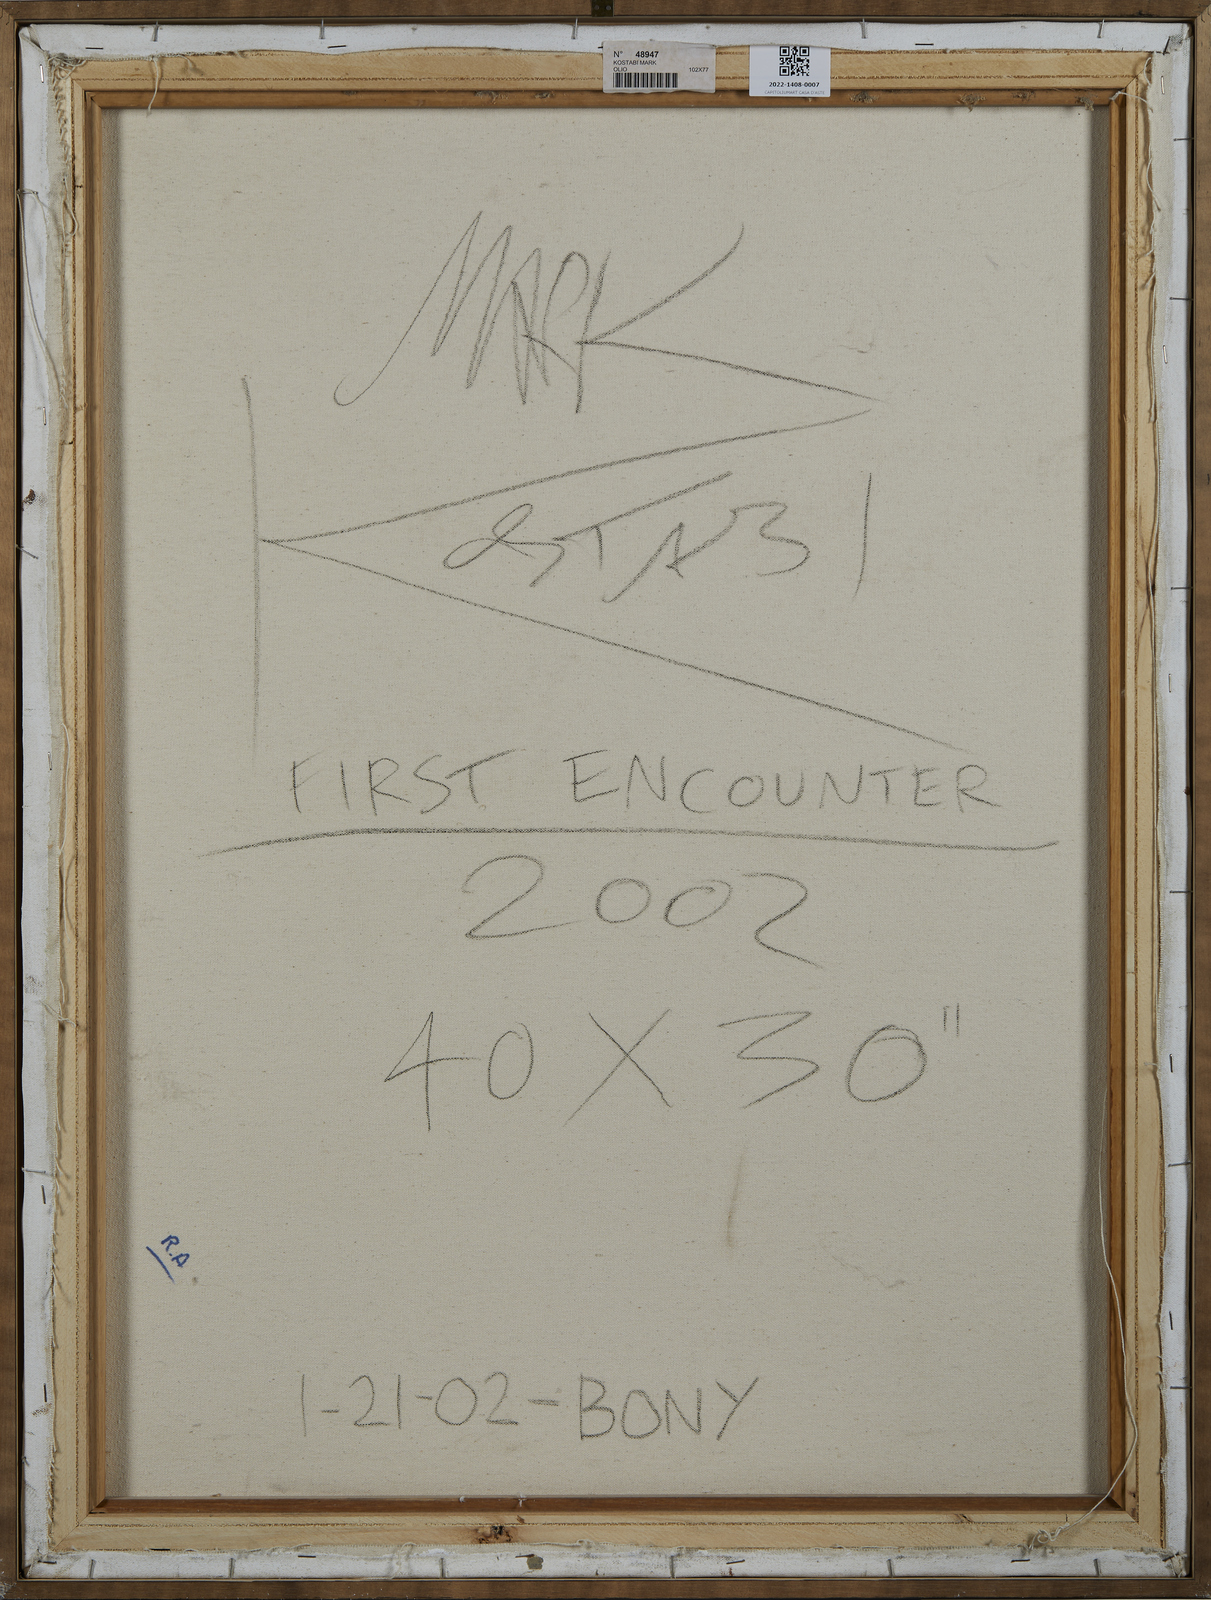 N° 48947
KOSTABI MARK
OLIO 102X77
2022-1408-0007
CAPITOLIUMART CASA D'ASTE
MARK
KOSTABI
FIRST ENCOUNTER
2002
40 X 30"
R.A.
1-21-02-BONY